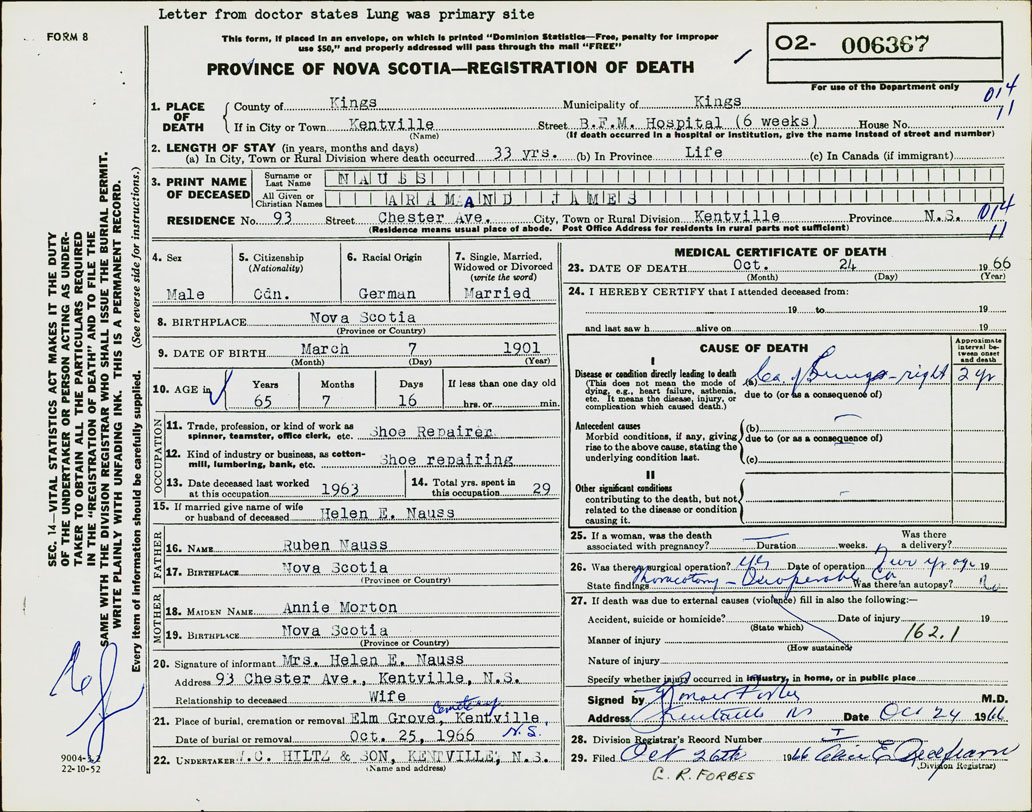 Letter from doctor states Lung was primary site
FORM 8
This form, if placed in an envelope, on which is printed "Dominion Statistics—Free, penalty for improper
use $50," and properly addressed will pass through the mail "FREE"
O2- 006367
For use of the Department only
PROVINCE OF NOVA SCOTIA—REGISTRATION OF DEATH
014
11
1. PLACE OF DEATH County of Kings Municipality of Kings
If in City or Town Kentville Street B.F.M. Hospital (6 weeks) House No.
(Name) (If death occurred in a hospital or institution, give the name instead of street and number)
2. LENGTH OF STAY (in years, months and days)
(a) In City, Town or Rural Division where death occurred 33 yrs. (b) In Province Life (c) In Canada (if immigrant)
3. PRINT NAME OF DECEASED Surname or Last Name NAUSS
All Given or Christian Names ARAMAND JAMES
RESIDENCE No. 93 Street Chester Ave. City, Town or Rural Division Kentville Province N.S. 014
11
(Residence means usual place of abode. Post Office Address for residents in rural parts not sufficient)
4. Sex Male
5. Citizenship (Nationality) Cdn.
6. Racial Origin German
7. Single, Married, Widowed or Divorced (write the word) Married
8. BIRTHPLACE Nova Scotia
(Province or Country)
9. DATE OF BIRTH March 7 1901
(Month) (Day) (Year)
10. AGE in Years 65 Months 7 Days 16 If less than one day old hrs. or min.
OCCUPATION
11. Trade, profession, or kind of work as spinner, teamster, office clerk, etc. Shoe Repairer
12. Kind of industry or business, as cotton-mill, lumbering, bank, etc. Shoe repairing
13. Date deceased last worked at this occupation 1963
14. Total yrs. spent in this occupation 29
15. If married give name of wife or husband of deceased Helen E. Nauss
FATHER
16. NAME Ruben Nauss
17. BIRTHPLACE Nova Scotia
(Province or Country)
MOTHER
18. MAIDEN NAME Annie Morton
19. BIRTHPLACE Nova Scotia
(Province or Country)
20. Signature of informant Mrs. Helen E. Nauss
Address 93 Chester Ave., Kentville, N.S.
Relationship to deceased Wife
21. Place of burial, cremation or removal Elm Grove Cemetery, Kentville, N.S.
Date of burial or removal Oct. 25, 1966
22. UNDERTAKER W.C. HILTZ & SON, KENTVILLE, N.S.
(Name and address)
MEDICAL CERTIFICATE OF DEATH
23. DATE OF DEATH Oct. 24 1966
(Month) (Day) (Year)
24. I HEREBY CERTIFY that I attended deceased from:
19 to 19
and last saw h alive on 19
CAUSE OF DEATH
Approximate interval between onset and death
I
Disease or condition directly leading to death
(This does not mean the mode of dying, e.g., heart failure, asthenia, etc. It means the disease, injury, or complication which caused death.)
(a) Ca. of Lungs - right 2 yr
due to (or as a consequence of)
Antecedent causes
Morbid conditions, if any, giving rise to the above cause, stating the underlying condition last.
(b)
due to (or as a consequence of)
(c)
II
Other significant conditions
contributing to the death, but not related to the disease or condition causing it.
25. If a woman, was the death associated with pregnancy? Duration weeks. Was there a delivery?
26. Was there a surgical operation? yes Date of operation Two yrs ago 19
State findings Thoracotomy - Inoperable Ca Was there an autopsy? No
27. If death was due to external causes (violence) fill in also the following:—
Accident, suicide or homicide? Date of injury 19
(State which)
Manner of injury 162.1
(How sustained)
Nature of injury
Specify whether injury occurred in industry, in home, or in public place
Signed by M.D.
Address Kentville NS Date Oct 24 1966
28. Division Registrar's Record Number
29. Filed Oct 26th 1966
(Division Registrar)
G. R. FORBES
SEC. 14—VITAL STATISTICS ACT MAKES IT THE DUTY
OF THE UNDERTAKER OR PERSON ACTING AS UNDER-
TAKER TO OBTAIN ALL THE PARTICULARS REQUIRED
IN THE "REGISTRATION OF DEATH" AND TO FILE THE
SAME WITH THE DIVISION REGISTRAR WHO SHALL ISSUE THE BURIAL PERMIT.
WRITE PLAINLY WITH UNFADING INK. THIS IS A PERMANENT RECORD.
Every item of information should be carefully supplied. (See reverse side for instructions.)
22-10-52